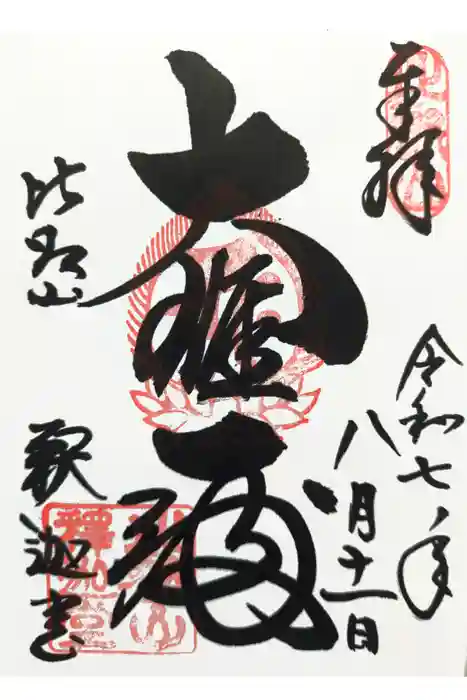 奉拝
令和七年
八月十一日
大雄殿
比叡山
釈迦堂